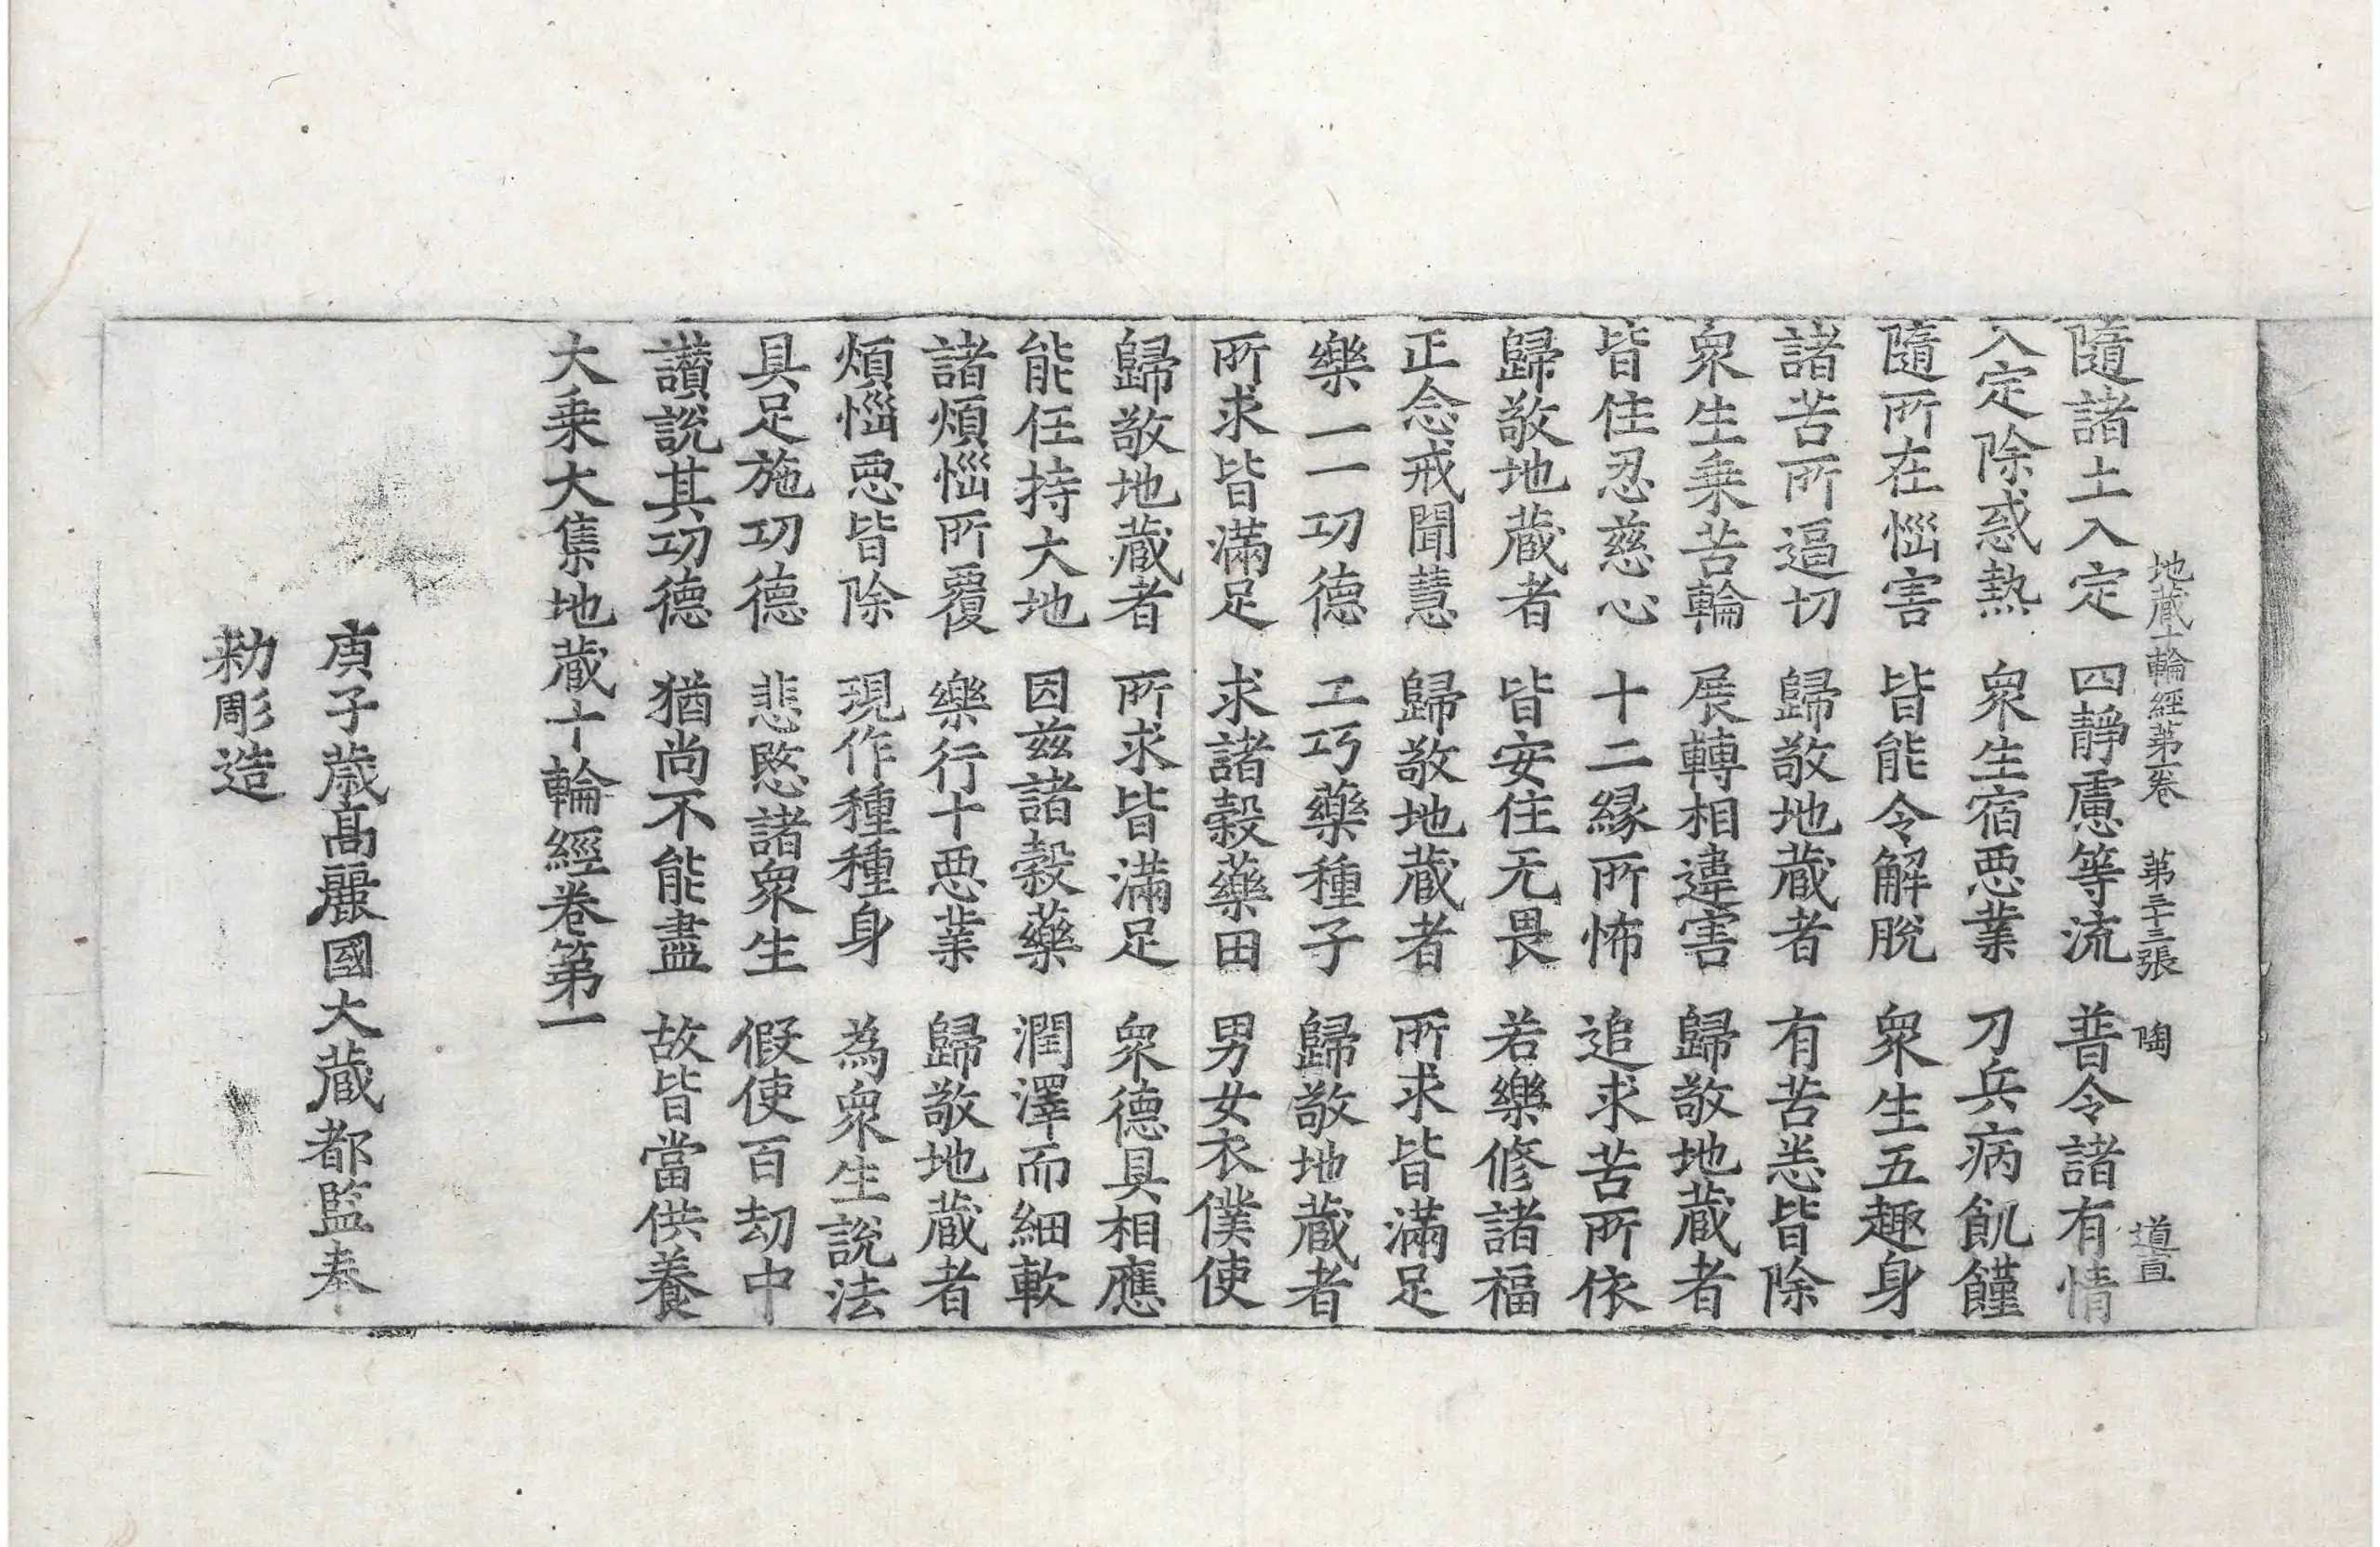 地蔵十輪經第一卷 第二十二張 陶 道亘
隨諸土入定 四靜慮等流 普令諸有情
入定除惑熱 衆生宿惡業 刀兵病飢饉
隨所在惱害 皆能令解脫 衆生五趣身
諸苦所逼切 歸敬地蔵者 有苦悉皆除
衆生乗苦輪 展轉相違害 歸敬地蔵者
皆住忍慈心 十二縁所怖 追求苦所依
歸敬地蔵者 皆安住无畏 若樂修諸福
正念戒聞慧 歸敬地蔵者 所求皆滿足
樂一一功德 工巧藥種子 歸敬地蔵者
所求皆滿足 求諸穀藥田 男女衣僕使
歸敬地蔵者 所求皆滿足 衆德具相應
能任持大地 因茲諸穀藥 潤澤而細軟
諸煩惱所覆 樂行十惡業 歸敬地蔵者
煩惱惡皆除 現作種種身 為衆生說法
具足施功德 悲愍諸衆生 假使百劫中
讃說其功德 猶尚不能盡 故皆當供養
大乗大集地蔵十輪經卷第一
庚子歳高麗國大蔵都監奉
勑彫造